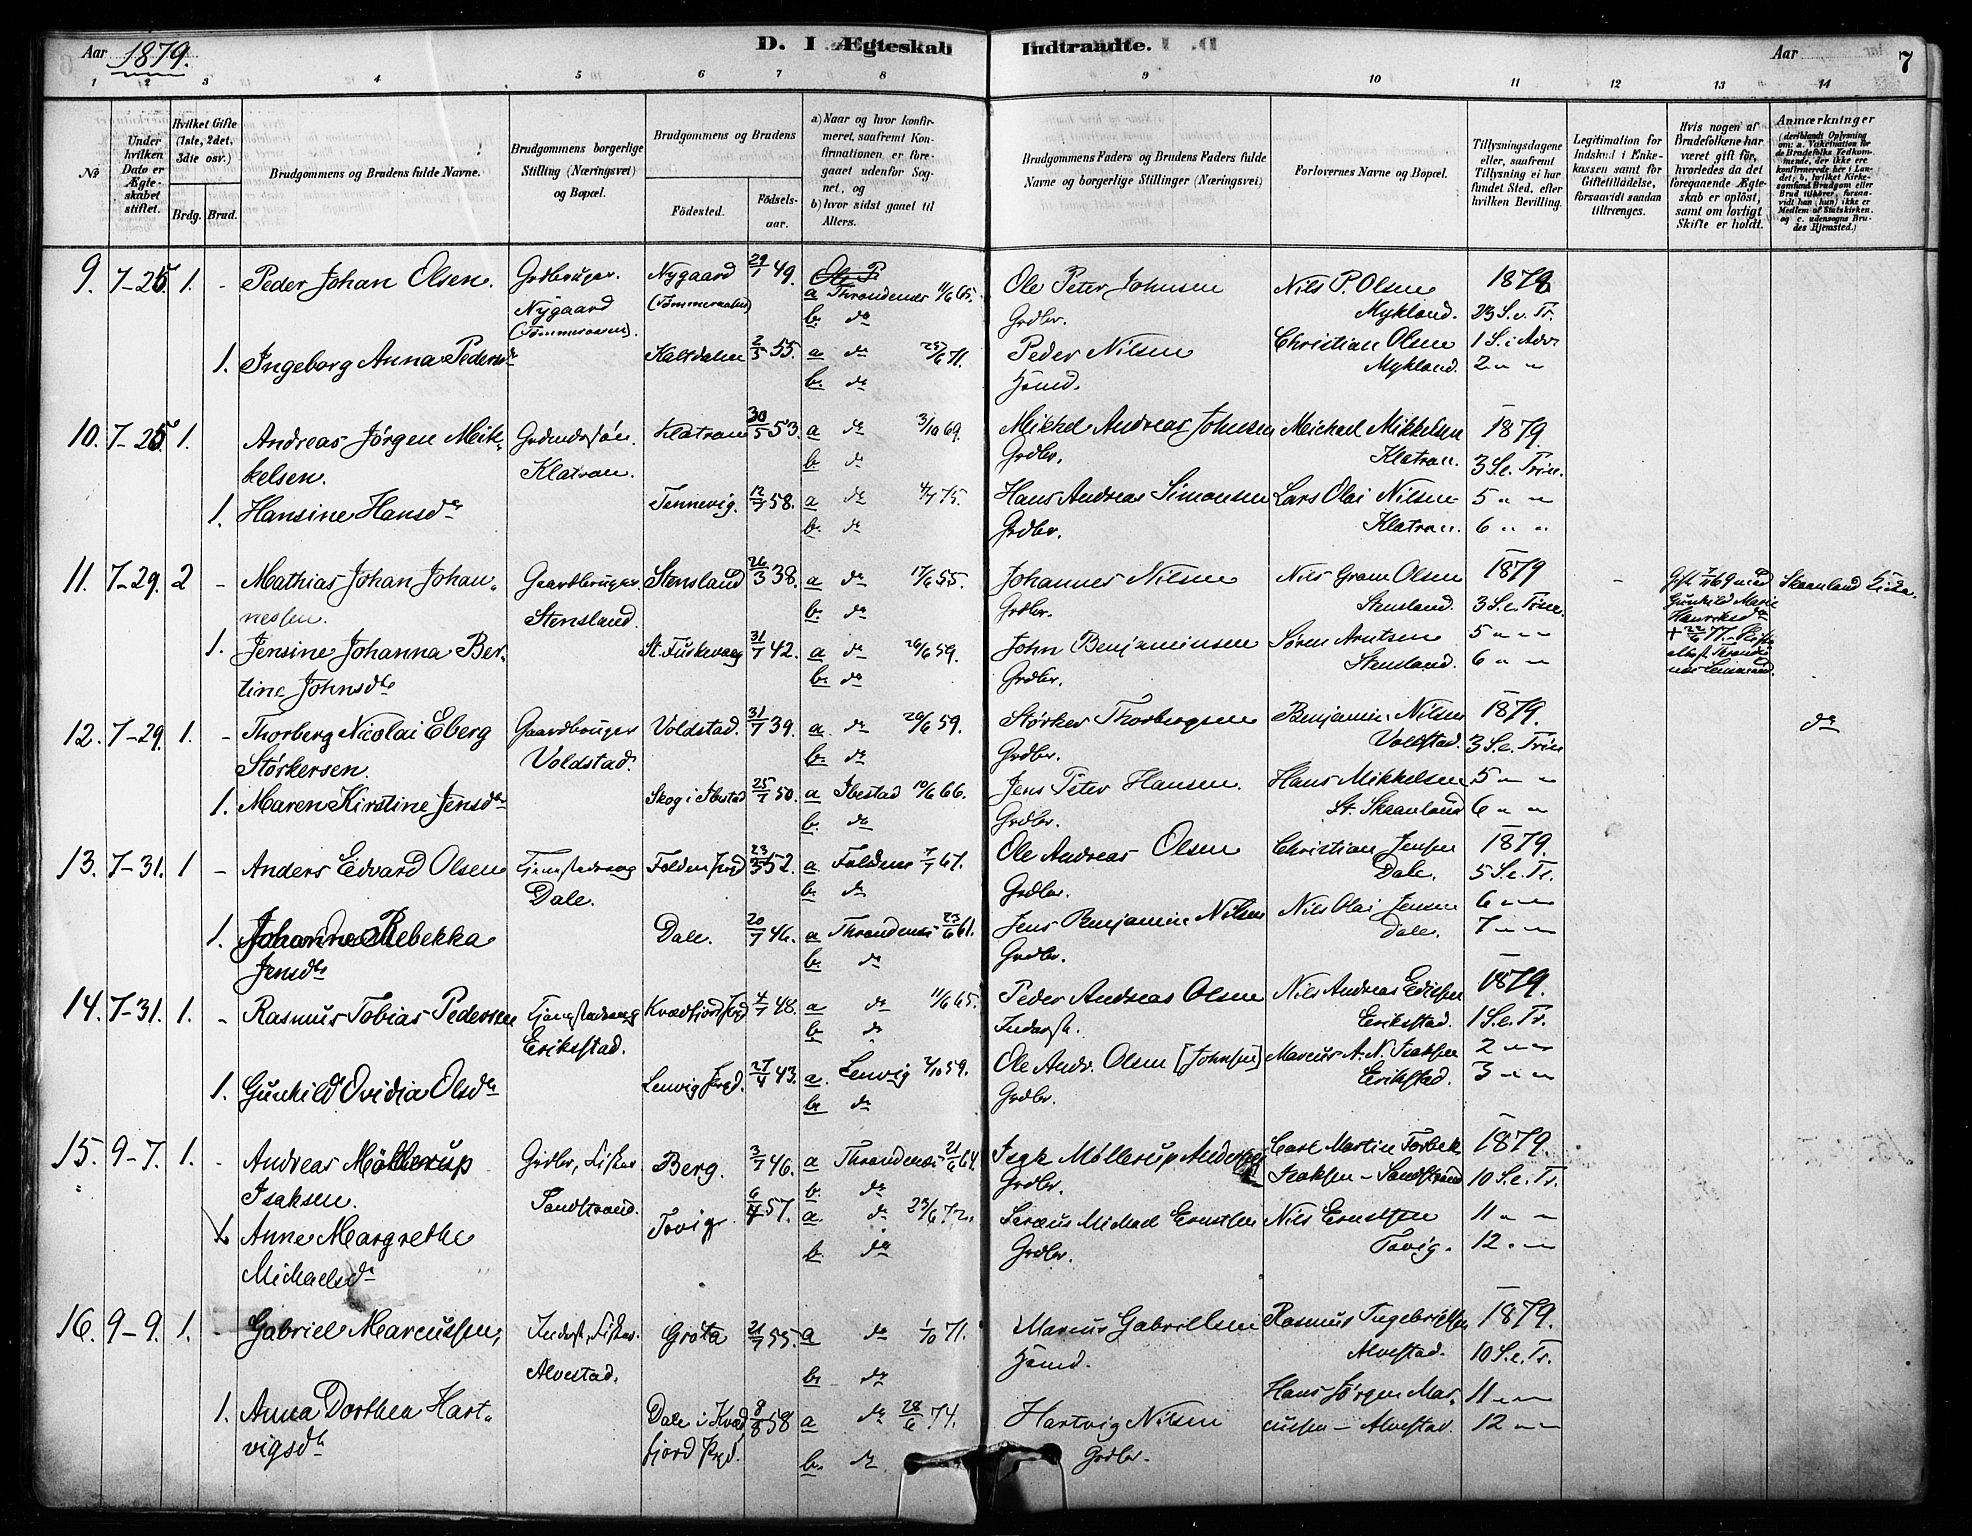 Aar 1879.
D. I Ægteskab Indtraadte.
Aar 7
1 2 3 4 5 6 7 8 9 10 11 12 13 14
No
Under hvilken Dato er Ægteskabet stiftet.
Hvilket Gifte (1ste, 2det, 3die osv.)
Brdg. Brud.
Brudgommens og Brudens fulde Navne.
Brudgommens borgerlige Stilling (Næringsvei) og Bopæl.
Brudgommens og Brudens
Födested.
Födselsaar.
a) Naar og hvor konfirmeret, saafremt Konfirmationen er foregaaet udenfor Sognet, og
b) hvor sidst gaaet til Alters.
Brudgommens Faders og Brudens Faders fulde Navne og borgerlige Stillinger (Næringsvei)
Forlovernes Navne og Bopæl.
Tillysningsdagene eller, saafremt Tillysning ei har fundet Sted, efter hvilken Bevilling.
Legitimation for Indskud i Enkekassen samt for Giftetilladelse, forsaavidt saadan tiltrænges.
Hvis nogen af Brudefolkene har været gift før, hvorledes da det foregaaende Ægteskab er opløst, samt om lovligt Skifte er holdt.
Anmærkninger
9. 7-25 1. - Peder Johan Olsen. Grdbruger. Nygaard 29/1 49. a Throndenæs 11/6 65. Ole Peter Johnsen Nils P. Olsen 1878
Nygaard b. do Grdbr. Mykland. 23 S. e. Tr.
1. Ingeborg Anna Pedersdtr Kaltdalen 2/5 55. a do 25/6 71. Peder Nilsen Christian Olsen 1 S. i Adv
b. do Hsmd. Mykland. 2 " "
10. 7-25 1. Andreas Jørgen Mik- Klatran 30/5 53. a do 3/10 69. Mikkel Andreas Johnsen Meichael Mikkelsen 1879.
kelsen. Klatran. b. do Grdbr. Klatran. 3 S. e. Trin.
1. Hansine Hansdtr Tennevig. 12/7 58. a do 4/7 75. Hans Andreas Simonsen Lars Olai Nilsen 5 " "
b. do Grdbr. Klatran. 6 " "
11. 7-29. 2 - Mathias Johan Johan- Gaardbruger Stensland 26/3 38. a do 17/6 55. Johannes Nilsen Nils Gram Olsen 1879 - Skaanland Kirke.
nessen. Stensland. b. do Grdbr. Stensland. 3 S. e. Trin.
1. Jensine Johanna Ber- St. Fiskevaag 31/7 42. a do 26/6 59. John Benjaminsen Søren Arntsen 5 " "
tine Johnsdtr b. do Grdbr. Stensland. 6 " "
12. 7-29. 1. - Thorberg Nicolai Eberg Gaardbruger Voldstad. 31/7 39. a. do 26/6 59. Størker Thorbergsen Benjamin Nilsen 1879. do
Størkersen. Voldstad. b. do Grdbr. Voldstad. 3 S. e. Trin
1. Maren Kirstine Jensdtr Skog i Ibestad 25/7 50. a Ibestad 10/6 66. Jens Peter Hansen. Hans Mikkelsen 5 " "
b. do Grdbr. St. Skaanland 6 " "
13. 7-31. 1 - Anders Edvard Olsen Folden Prgd 23/5 52. a Folden 7/7 67. Ole Andreas Olsen Christian Jensen 1879.
Dale. b. do Grdbr. Dale. 5 S. e. Tr.
1. Johanne Rebekka Dale. 20/7 46. a Throndenæs 23/6 61. Jens Benjamin Nilsen Nils Olai Jensen 6 " "
Jensdtr b. do Grdbr. Dale. 7 " "
14. 7-31. 1. - Rasmus Tobias Pedersen Kvædfjord Prgd 4/7 48. a do 11/6 65. Peder Andreas Olsen Nils Andreas 1879.
Erikstad. b. do Inderst. Erikstad. 1 S. e. Tr.
1. Gunhild Ovidia Olsdtr Lenvig Prgd. 27/4 43. a. Lenvig 2/10 59. Ole Andr. Olsen [Johnsen] Marcus A. N. Isaksen 2 " "
b. do Grdbr. Erikstad. 3 " "
15. 9-7. 1. - Andreas Møllerup Grdbr, Fisker Berg. 3/7 46. a Throndenæs 21/6 64. Isak Møllerup Andersen Carl Martin Torbek 1879.
Isaksen. Sandstrand. b. do Grdbr. Isaksen - Sandstrand 10 S. e. Tr.
1. Anne Margrethe Tovig. 57. a. do 23/6 72. Michael Ernstsen Nils Ernstsen 11 " "
Michaelsdtr b. do Grdbr. Tovig. 12 " "
16. 9-9. 1. - Gabriel Marcussen, Inderst, Fisker. Grøta 21/7 55. a do 1/10 71. Marcus Gabrillsen Rasmus Ingebrigtsen 1879.
Alvestad. b. do Hsmd. Alvestad. 10 S. e. Tr.
1. Anna Dorthea Hart- Dale i Kvæd 8/8 58 a do 28/6 74. Hartvig Nilsen Hans Jørgen Mar- 11 " "
vigsdtr fjord Prgd. b. do Grdbr. cussen - Alvestad. 12 " "